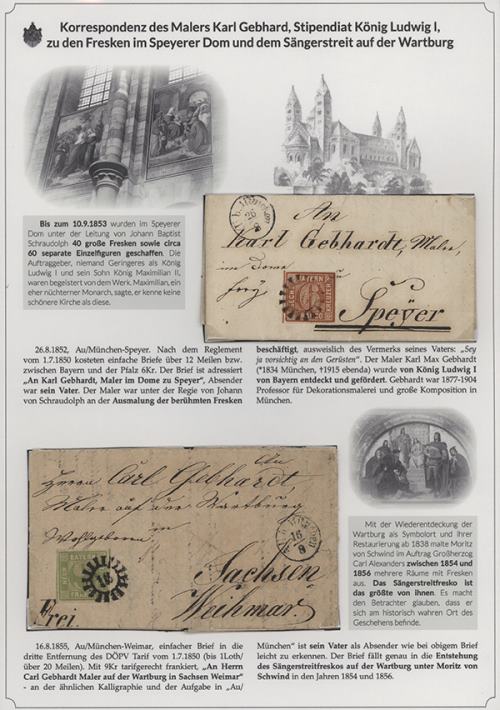 Korrespondenz des Malers Karl Gebhard, Stipendiat König Ludwig I,
zu den Fresken im Speyerer Dom und dem Sängerstreit auf der Wartburg
Bis zum 10.9.1853 wurden im Speyerer
Dom unter der Leitung von Johann Baptist
Schraudolph 40 große Fresken sowie circa
60 separate Einzelfiguren geschaffen. Die
Auftraggeber, niemand Geringeres als König
Ludwig I und sein Sohn König Maximilian II,
waren begeistert von dem Werk. Maximilian, ein
eher nüchterner Monarch, sagte, er kenne keine
schönere Kirche als diese.
An
Karl Gebhardt, Maler,
im Dome
frey
Speyer
BAYERN
26.8.1852, Au/München-Speyer. Nach dem Reglement
vom 1.7.1850 kosteten einfache Briefe über 12 Meilen bzw.
zwischen Bayern und der Pfalz 6Kr. Der Brief ist adressiert
„An Karl Gebhardt, Maler im Dome zu Speyer", Absender
war sein Vater. Der Maler war unter der Regie von Johann
von Schraudolph an der Ausmalung der berühmten Fresken
beschäftigt, ausweislich des Vermerks seines Vaters: „Sey
ja vorsichtig an den Gerüsten". Der Maler Karl Max Gebhardt
(*1834 München, †1915 ebenda) wurde von König Ludwig I
von Bayern entdeckt und gefördert. Gebhardt war 1877-1904
Professor für Dekorationsmalerei und große Komposition in
München.
An
Herrn Carl Gebhardt,
Maler auf der Wartburg
Wohlgeboren
in
Sachsen
Weihmar.
Frei.
BAYERN
18
Mit der Wiederentdeckung der
Wartburg als Symbolort und ihrer
Restaurierung ab 1838 malte Moritz
von Schwind im Auftrag Großherzog
Carl Alexanders zwischen 1854 und
1856 mehrere Räume mit Fresken
aus. Das Sängerstreitfresko ist
das größte von ihnen. Es macht
den Betrachter glauben, dass er
sich am historisch wahren Ort des
Geschehens befinde.
16.8.1855, Au/München-Weimar, einfacher Brief in die
dritte Entfernung des DÖPV Tarif vom 1.7.1850 (bis 1Loth/
über 20 Meilen). Mit 9Kr tarifgerecht frankiert, „An Herrn
Carl Gebhardt Maler auf der Wartburg in Sachsen Weimar"
- an der ähnlichen Kalligraphie und der Aufgabe in „Au/
München" ist sein Vater als Absender wie bei obigem Brief
leicht zu erkennen. Der Brief fällt genau in die Entstehung
des Sängerstreitfreskos auf der Wartburg unter Moritz von
Schwind in den Jahren 1854 und 1856.